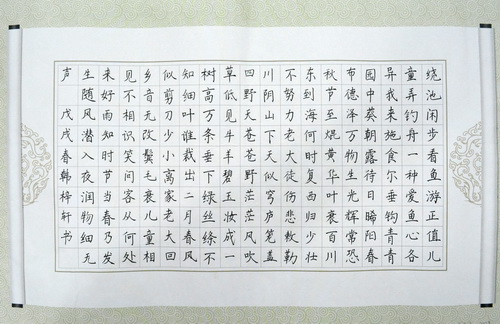 绕池闲步看鱼游正值儿
童弄钓舟一种爱鱼心各
异我来施食尔垂钩青青
园中葵朝露待日晞阳春
布德泽万物生光辉常恐
秋节至焜黄华叶衰百川
东到海何时复西归少壮
不努力老大徒伤悲敕勒
川阴山下天似穹庐笼盖
四野天苍苍野茫茫风吹
草低见牛羊碧玉妆成一
树高万条垂下绿丝绦不
知细叶谁裁出二月春风
似剪刀少小离家老大回
乡音无改鬓毛衰儿童相
见不相识笑问客从何处
来好雨知时节当春乃发
生随风潜入夜润物细无
声 戊戌春韩梓轩书